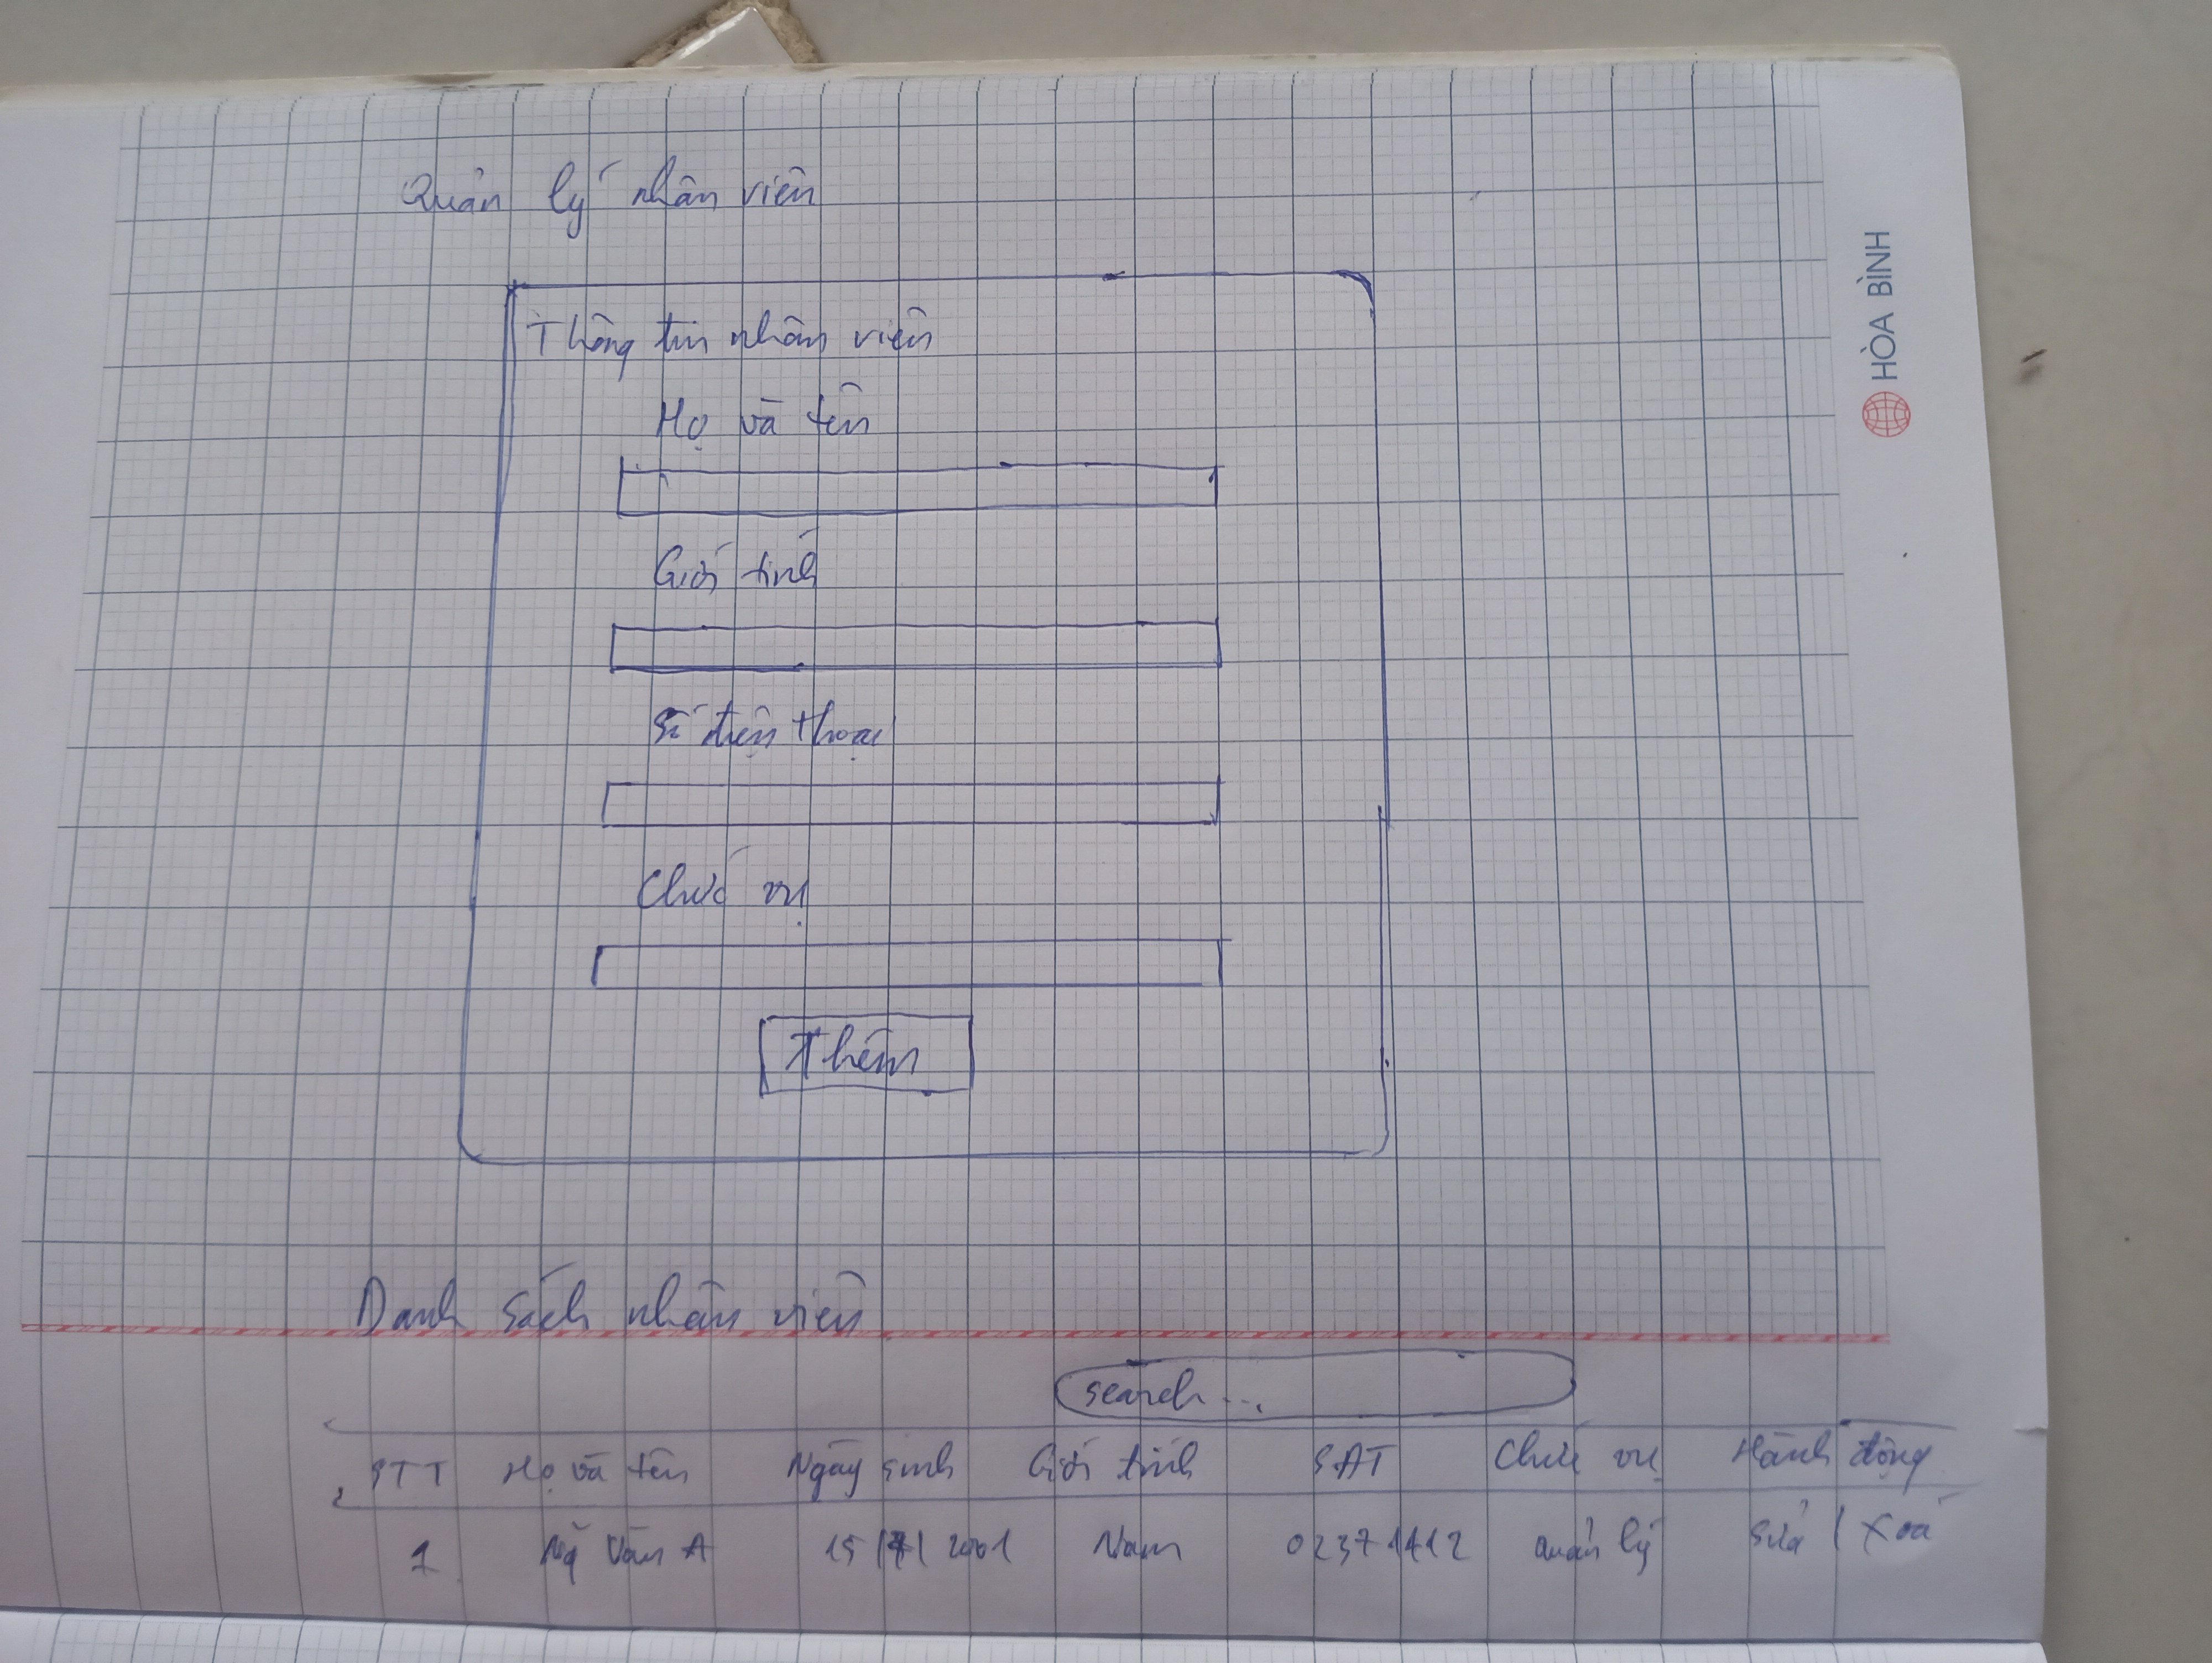 Quản lý nhân viên
HÒA BÌNH
Thông tin nhân viên
Họ và tên
Giới tính
Số điện thoại
Chức vụ
Thêm
Danh sách nhân viên
search...
STT Họ và tên Ngày sinh Giới tính SĐT Chức vụ Hành động
1 Văn A 15/7/2001 Nam 02371412 Quản lý Sửa / Xoá